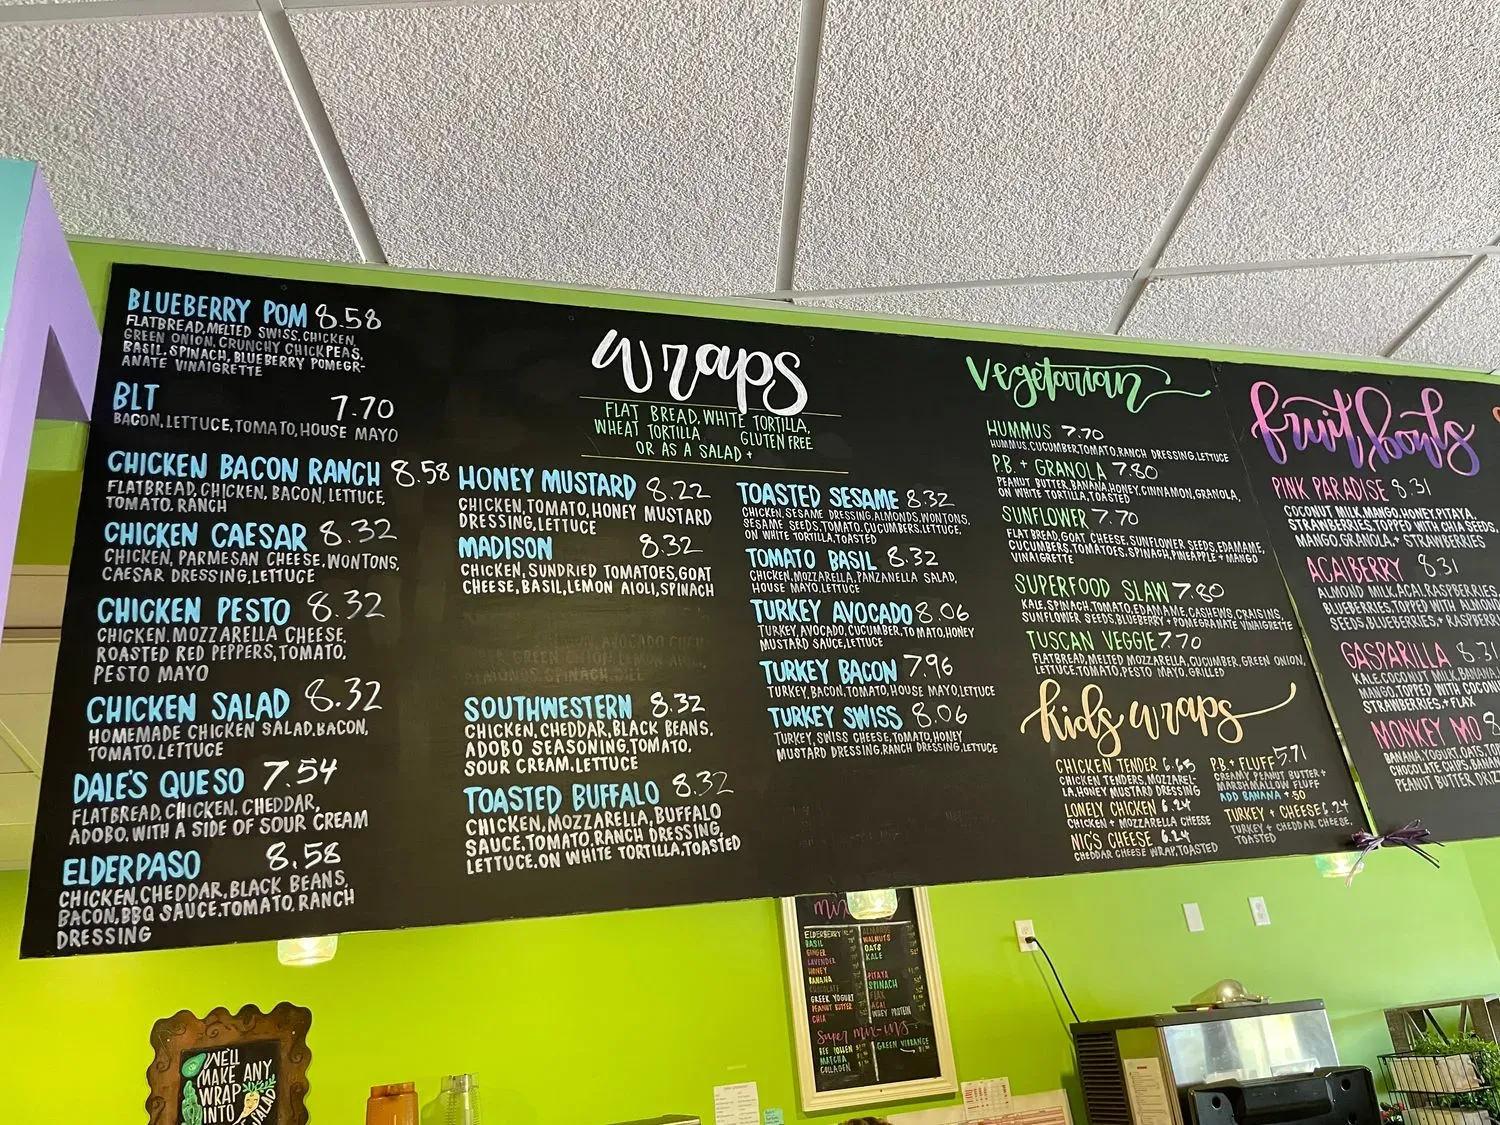 BLUEBERRY POM 8.58
FLATBREAD, MELTED SWISS, CHICKEN,
GREEN ONION, CRUNCHY CHICKPEAS,
BASIL, SPINACH, BLUEBERRY POMEGR-
ANATE VINAIGRETTE
BLT 7.70
BACON, LETTUCE, TOMATO, HOUSE MAYO
CHICKEN BACON RANCH 8.58
FLATBREAD, CHICKEN, BACON, LETTUCE,
TOMATO, RANCH
CHICKEN CAESAR 8.32
CHICKEN, PARMESAN CHEESE, WONTONS,
CAESAR DRESSING, LETTUCE
CHICKEN PESTO 8.32
CHICKEN, MOZZARELLA CHEESE,
ROASTED RED PEPPERS, TOMATO,
PESTO MAYO
CHICKEN SALAD 8.32
HOMEMADE CHICKEN SALAD, BACON,
TOMATO, LETTUCE
DALE'S QUESO 7.54
FLATBREAD, CHICKEN, CHEDDAR,
ADOBO, WITH A SIDE OF SOUR CREAM
ELDERPASO 8.58
CHICKEN, CHEDDAR, BLACK BEANS,
BACON, BBQ SAUCE, TOMATO, RANCH
DRESSING
wraps
FLAT BREAD, WHITE TORTILLA,
WHEAT TORTILLA GLUTEN FREE
OR AS A SALAD +
HONEY MUSTARD 8.22
CHICKEN, TOMATO, HONEY MUSTARD
DRESSING, LETTUCE
MADISON 8.32
CHICKEN, SUNDRIED TOMATOES, GOAT
CHEESE, BASIL, LEMON AIOLI, SPINACH
SOUTHWESTERN 8.32
CHICKEN, CHEDDAR, BLACK BEANS,
ADOBO SEASONING, TOMATO,
SOUR CREAM, LETTUCE
TOASTED BUFFALO 8.32
CHICKEN, MOZZARELLA, BUFFALO
SAUCE, TOMATO, RANCH DRESSING,
LETTUCE, ON WHITE TORTILLA, TOASTED
TOASTED SESAME 8.32
CHICKEN, SESAME DRESSING, ALMONDS, WONTONS,
SESAME SEEDS, TOMATO, CUCUMBERS, LETTUCE,
ON WHITE TORTILLA, TOASTED
TOMATO BASIL 8.32
CHICKEN, MOZZARELLA, PANZANELLA SALAD,
HOUSE MAYO, LETTUCE
TURKEY AVOCADO 8.06
TURKEY, AVOCADO, CUCUMBER, TOMATO, HONEY
MUSTARD SAUCE, LETTUCE
TURKEY BACON 7.96
TURKEY, BACON, TOMATO, HOUSE MAYO, LETTUCE
TURKEY SWISS 8.06
TURKEY, SWISS CHEESE, TOMATO, HONEY
MUSTARD DRESSING, RANCH DRESSING, LETTUCE
Vegetarian
HUMMUS 7.70
HUMMUS, CUCUMBER, TOMATO, RANCH DRESSING, LETTUCE
P.B. + GRANOLA 7.80
PEANUT BUTTER, BANANA, HONEY, CINNAMON, GRANOLA,
ON WHITE TORTILLA, TOASTED
SUNFLOWER 7.70
FLATBREAD, GOAT CHEESE, SUNFLOWER SEEDS, EDAMAME,
CUCUMBERS, TOMATOES, SPINACH, PINEAPPLE + MANGO
VINAIGRETTE
SUPERFOOD SLAW 7.80
KALE, SPINACH, TOMATO, EDAMAME, CASHEWS, CRAISINS,
SUNFLOWER SEEDS, BLUEBERRY + POMEGRANATE VINAIGRETTE
TUSCAN VEGGIE 7.70
FLATBREAD, MELTED MOZZARELLA, CUCUMBER, GREEN ONION,
LETTUCE, TOMATO, PESTO MAYO, GRILLED
kids wraps
CHICKEN TENDER 6.65
CHICKEN TENDERS, MOZZAREL-
LA, HONEY MUSTARD DRESSING
LONELY CHICKEN 6.24
CHICKEN + MOZZARELLA CHEESE
NIC'S CHEESE 6.24
CHEDDAR CHEESE WRAP, TOASTED
P.B. + FLUFF 5.71
CREAMY PEANUT BUTTER +
MARSHMALLOW FLUFF
ADD BANANA +.50
TURKEY + CHEESE 6.24
TURKEY + CHEDDAR CHEESE,
TOASTED
fruit bowls
PINK PARADISE 8.31
COCONUT MILK, MANGO, HONEY, PITAYA,
STRAWBERRIES, TOPPED WITH CHIA SEEDS,
MANGO, GRANOLA, + STRAWBERRIES
ACAIBERRY 8.31
ALMOND MILK, ACAI, RASPBERRIES,
BLUEBERRIES, TOPPED WITH ALMOND
SEEDS, BLUEBERRIES, + RASPBERR
GASPARILLA 8.31
KALE, COCONUT MILK, BANANA,
MANGO, TOPPED WITH COCONU
STRAWBERRIES, + FLAX
MONKEY MO 8
BANANA, YOGURT, OATS, TOP
CHOCOLATE CHIPS, BANAN
PEANUT BUTTER DRIZ
WE'LL
MAKE ANY
WRAP
INTO
A SALAD
mix
ELDERBERRY
BASIL
GINGER
LAVENDER
HONEY
BANANA
CHOCOLATE
GREEK YOGURT
PEANUT BUTTER
CHIA
ALMONDS
WALNUTS
OATS
KALE
PITAYA
SPINACH
FLAX
ACAI
WHEY PROTEIN
super mix-ins
BEE POLLEN
MATCHA
COLLAGEN
GREEN VIBRANCE